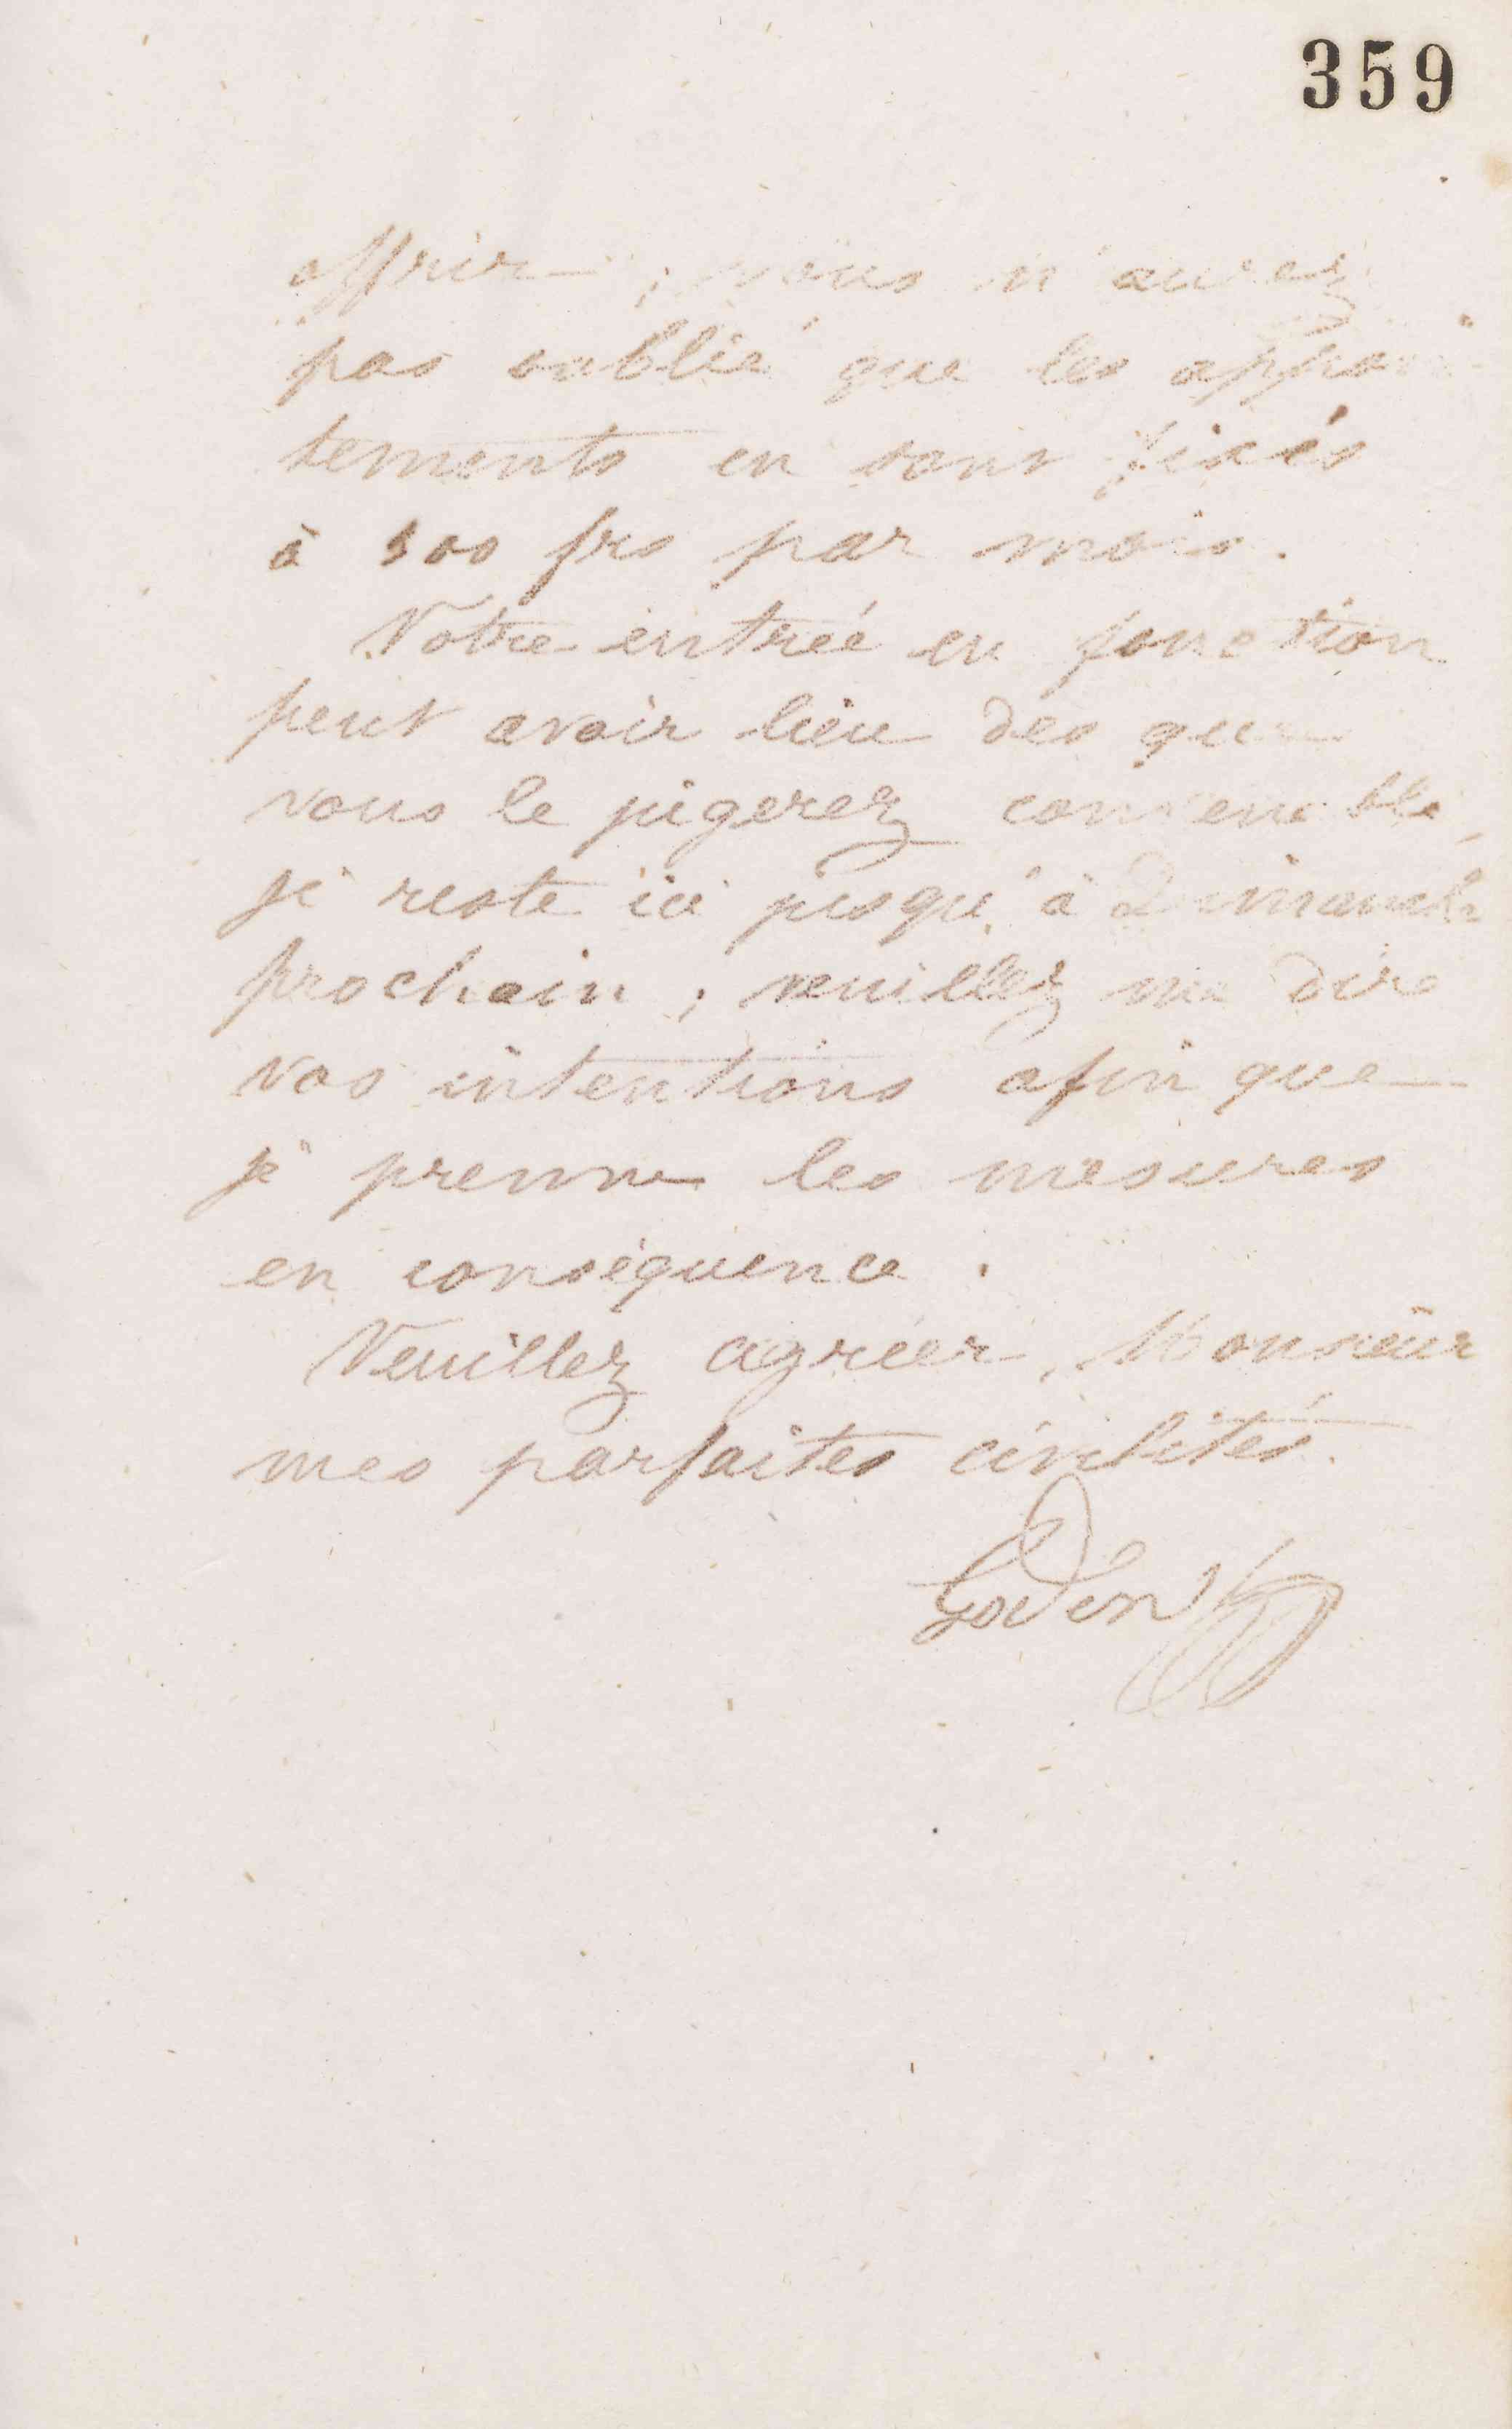 359
offrir ; vous n'aurez
pas oublié que les appoin-
tements en sont fixés
à 300 frs par mois.
Votre entrée en fonction
peut avoir lieu dès que
vous le jugerez convenable,
je reste ici jusqu'à Dimanche
prochain ; veuillez me dire
vos intentions afin que
je prenne les mesures
en conséquence.
Veuillez agréer, Monsieur
mes parfaites civilités.
Godin